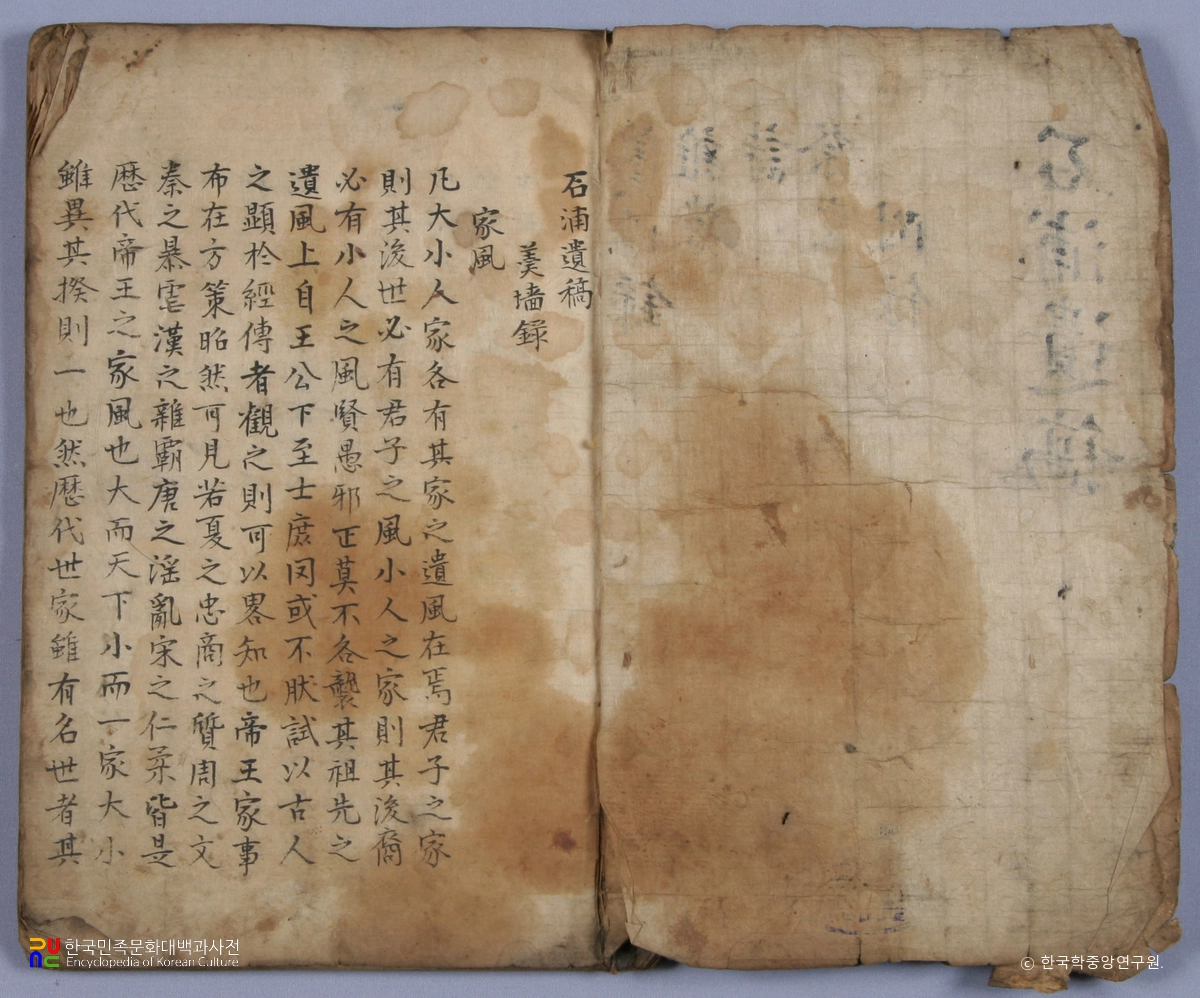 石浦遺稿
羹墻録
家風
凡大小人家各有其家之遺風在焉君子之家
則其後世必有君子之風小人之家則其後裔
必有小人之風賢愚邪正莫不各襲其祖先之
遺風上自王公下至士庶罔或不肰試以古人
之顕於經傳者觀之則可以畧知也帝王家事
布在方策昭然可見若夏之忠商之質周之文
秦之暴虐漢之雜霸唐之淫亂宋之仁柔皆是
歷代帝王之家風也大而天下小而一家大小
雖異其揆則一也然歷代世家雖有名世者其
한국민족문화대백과사전
Encyclopedia of Korean Culture
© 한국학중앙연구원.